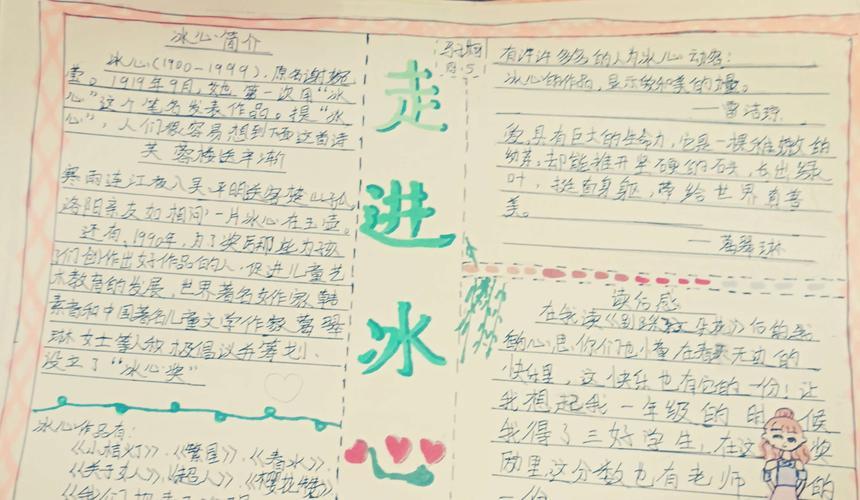 冰心简介
冰心(1900-1999).原名谢婉
莹。1919年9月,她第一次用“冰
心”这个笔名发表作品。提“冰
心”,人们很容易想到下面这首诗
芙蓉楼送辛渐
寒雨连江夜入吴,平明送客楚山孤
洛阳亲友如相问一片冰心在玉壶。
还有,1990年,为了奖励那些为孩
子们创作出好作品的人.促进儿童艺
术教育的发展,世界著名女作家韩
素音和中国著名儿童文学作家葛翠
琳女士等人积极倡议并筹划、
设立了“冰心奖”
冰心作品有:
《小桔灯》.《繁星》.《春水》.
《关于女人》.《超人》.《樱花赞》
走
进
冰
心
有许许多多的人为冰心动容:
冰心的作品,显示着和美的力量。
——雷洁琼
爱,具有巨大的生命力,它是一棵稚嫩的
幼芽,却能推开坚硬的石头,长出绿
叶,挺直身躯,带给世界真善
美。
——葛翠琳
读后感
在我读《别踩了这朵花》后的我
的心思,你们也懂在春天无边的
快乐里,这快乐也有它的一份!让
我想起我一年级的时候
我得了三好学生,在这奖
励里这分数也有老师的
一份